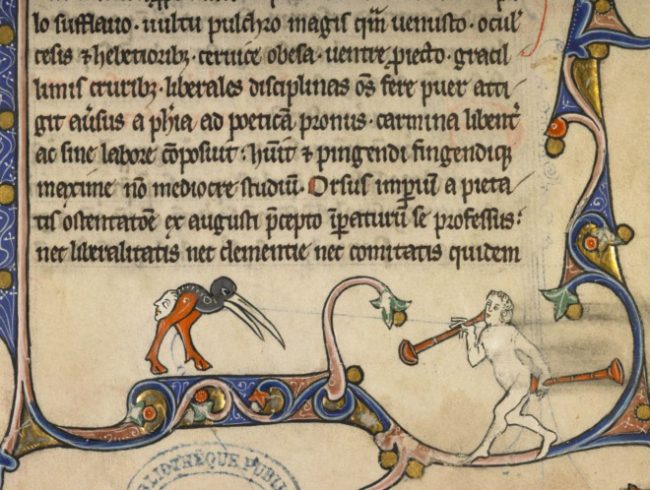 lo sufflauo · uultu pulchro magis qm̄ uenusto · ocul'
cesis ⁊ hebetioribꝫ · ceruice obesa · uentre ꝓiecto · gracil
limis cruribꝫ · liberales disciplinas oēs fere puer atti
git au̾sus a ph̄ia ad poeticā pronus · carmina libent̾
ac sine labore cōposuit : hūit ⁊ pingendi fingendiqꝫ
maxime nō mediocre studiū. Orsus imꝑiū a pieta
tis ostentatōe ex augusti p̄cepto īꝑaturū se professus:
nec liberalitatis nec clementie nec comitatis quidem
BIBLIOTHÈQUE PUBLI